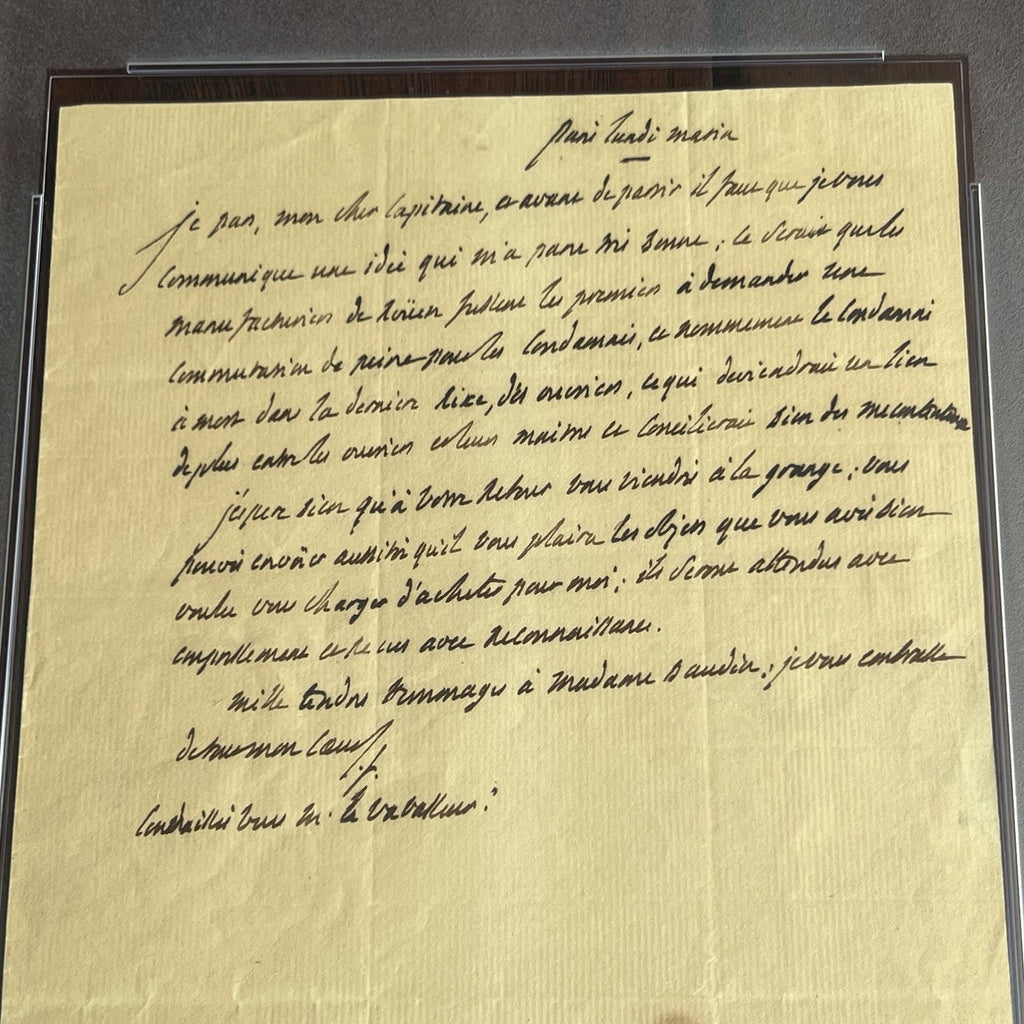 paris lundi matin
je pars, mon cher Capitaine, et avant de partir il faut que je vous
Communique une idée qui m'a paru très bonne; ce serait que les
manufacturiers de Roüen fussent les premiers à demander une
Commutation de peine pour les Condamnés, et nommement le Condamné
à mort dans la derniere rixe, des ouvriers, ce qui deviendrait un lien
de plus entre les ouvriers et leurs maitres et Concilierait bien des mecontentemens
j'espere bien qu'à votre retour vous viendrés à la grange; vous
pouvés envoïer aussitôt qu'il vous plaira les objets que vous avés bien
voulu vous charger d'acheter pour moi; ils seront attendus avec
empressement et recus avec reconnaissance.
mille tendres hommages à Madame; je vous embrasse
de tout mon Coeur
Connaissés vous M. le vavasseur?